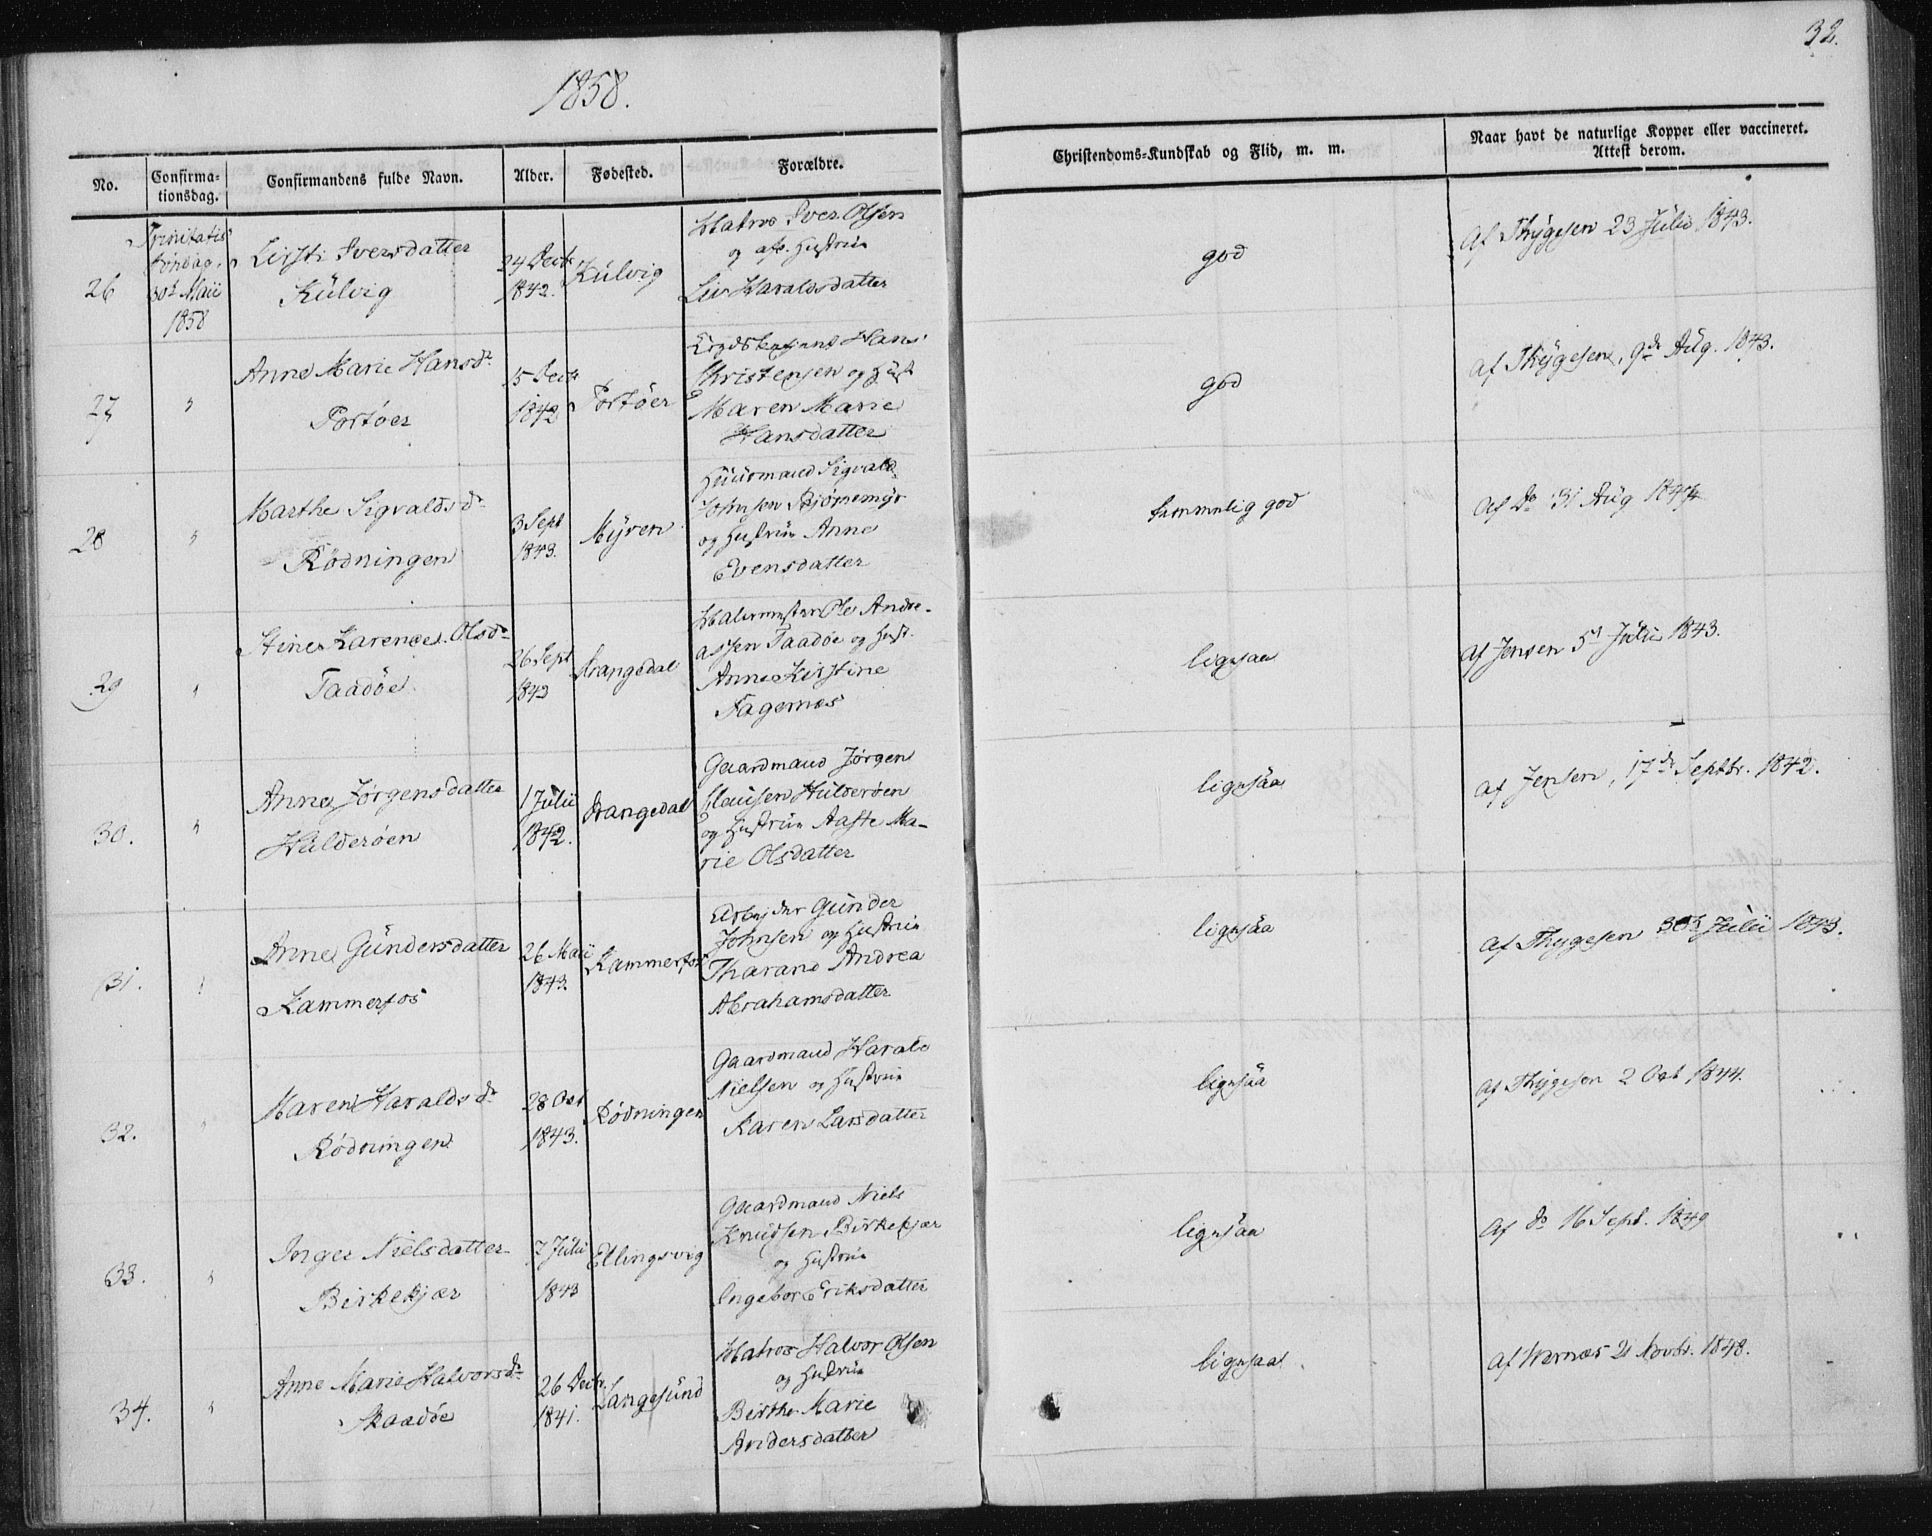 32.
1858.
No.
Confirma-
tionsdag.
Confirmandens fulde Navn.
Alder.
Fødested.
Forældre.
Christendoms-Kundskab og Flid, m. m.
Naar havt de naturlige Kopper eller vaccineret.
Attest derom.
26
Trinitatis
Søndag
30t Maii
1858
Kirsti Sversdatter
Külvig
24 Decbr
1842.
Külvig
Matros Sver Olsen
og afd. Hustrue
Liv Haraldsdatter
god
af Thygesen 23 Julii 1843.
27
"
Anne Marie Hansdr
Portöer
15 Decbr
1842
Portöer
Hans
Christensen og Hust
Maren Marie
Hansdatter
god
af Thygesen, 9de Aug. 1843.
28
"
Marthe Sigvaldsdr
Rödningen
3 Sept
1843.
Myren
Huusmand Sigvald
Johnsen Bjørnemyr
og Hustrue Anne
Evensdatter
temmelig god
af Do 31 Aug 1844
29
"
Stine Karence Olsdr
Taadöe
26 Sept
1842
Drangedal
Ole Andre-
assen Taadöe og Hust.
Anne Kirstine
Fagernæs
ligesaa
af Jensen 5t Julii 1843.
30.
"
Anne Jörgensdatter
Hülderöen
1 Julii
1842.
Drangedal
Gaardmand Jörgen
Clausen Hülderöen
og Hustrue Aaste Ma-
rie Olsdatter
ligesaa
af Jensen, 17de Septbr. 1842.
31.
"
Anne Gündersdatter
Kammerfos
26 Maii
1843.
Kammerfos
Arbejder Günder
Johnsen og Hustrue
Tharand Andrea
Abrahamsdatter
ligesaa
af Thygesen 30t Julii 1843.
32.
"
Maren Haraldsdr
Rödningen
28 Oct
1843.
Rödningen
Gaardmand Harald
Nielsen og Hustrue
Karen Larsdatter
ligesaa
af Thygesen 2 Oct 1844.
33.
"
Inger Nielsdatter
Birkekjær
7 Julii
1843
Ellingsvig
Gaardmand Niels
Knudsen Birkekjær
og Hustrue
Ingebor Eriksdatter
ligesaa
af do 16 Sept. 1849
34.
"
Anne Marie Halvorsdr
Skaadöe
26 Decbr.
1841.
Langesünd
Matros Halvor Olsen
og Hustrue
Birthe Marie
Andersdatter
ligesaa
af Wærnæs 21 Novbr. 1848.